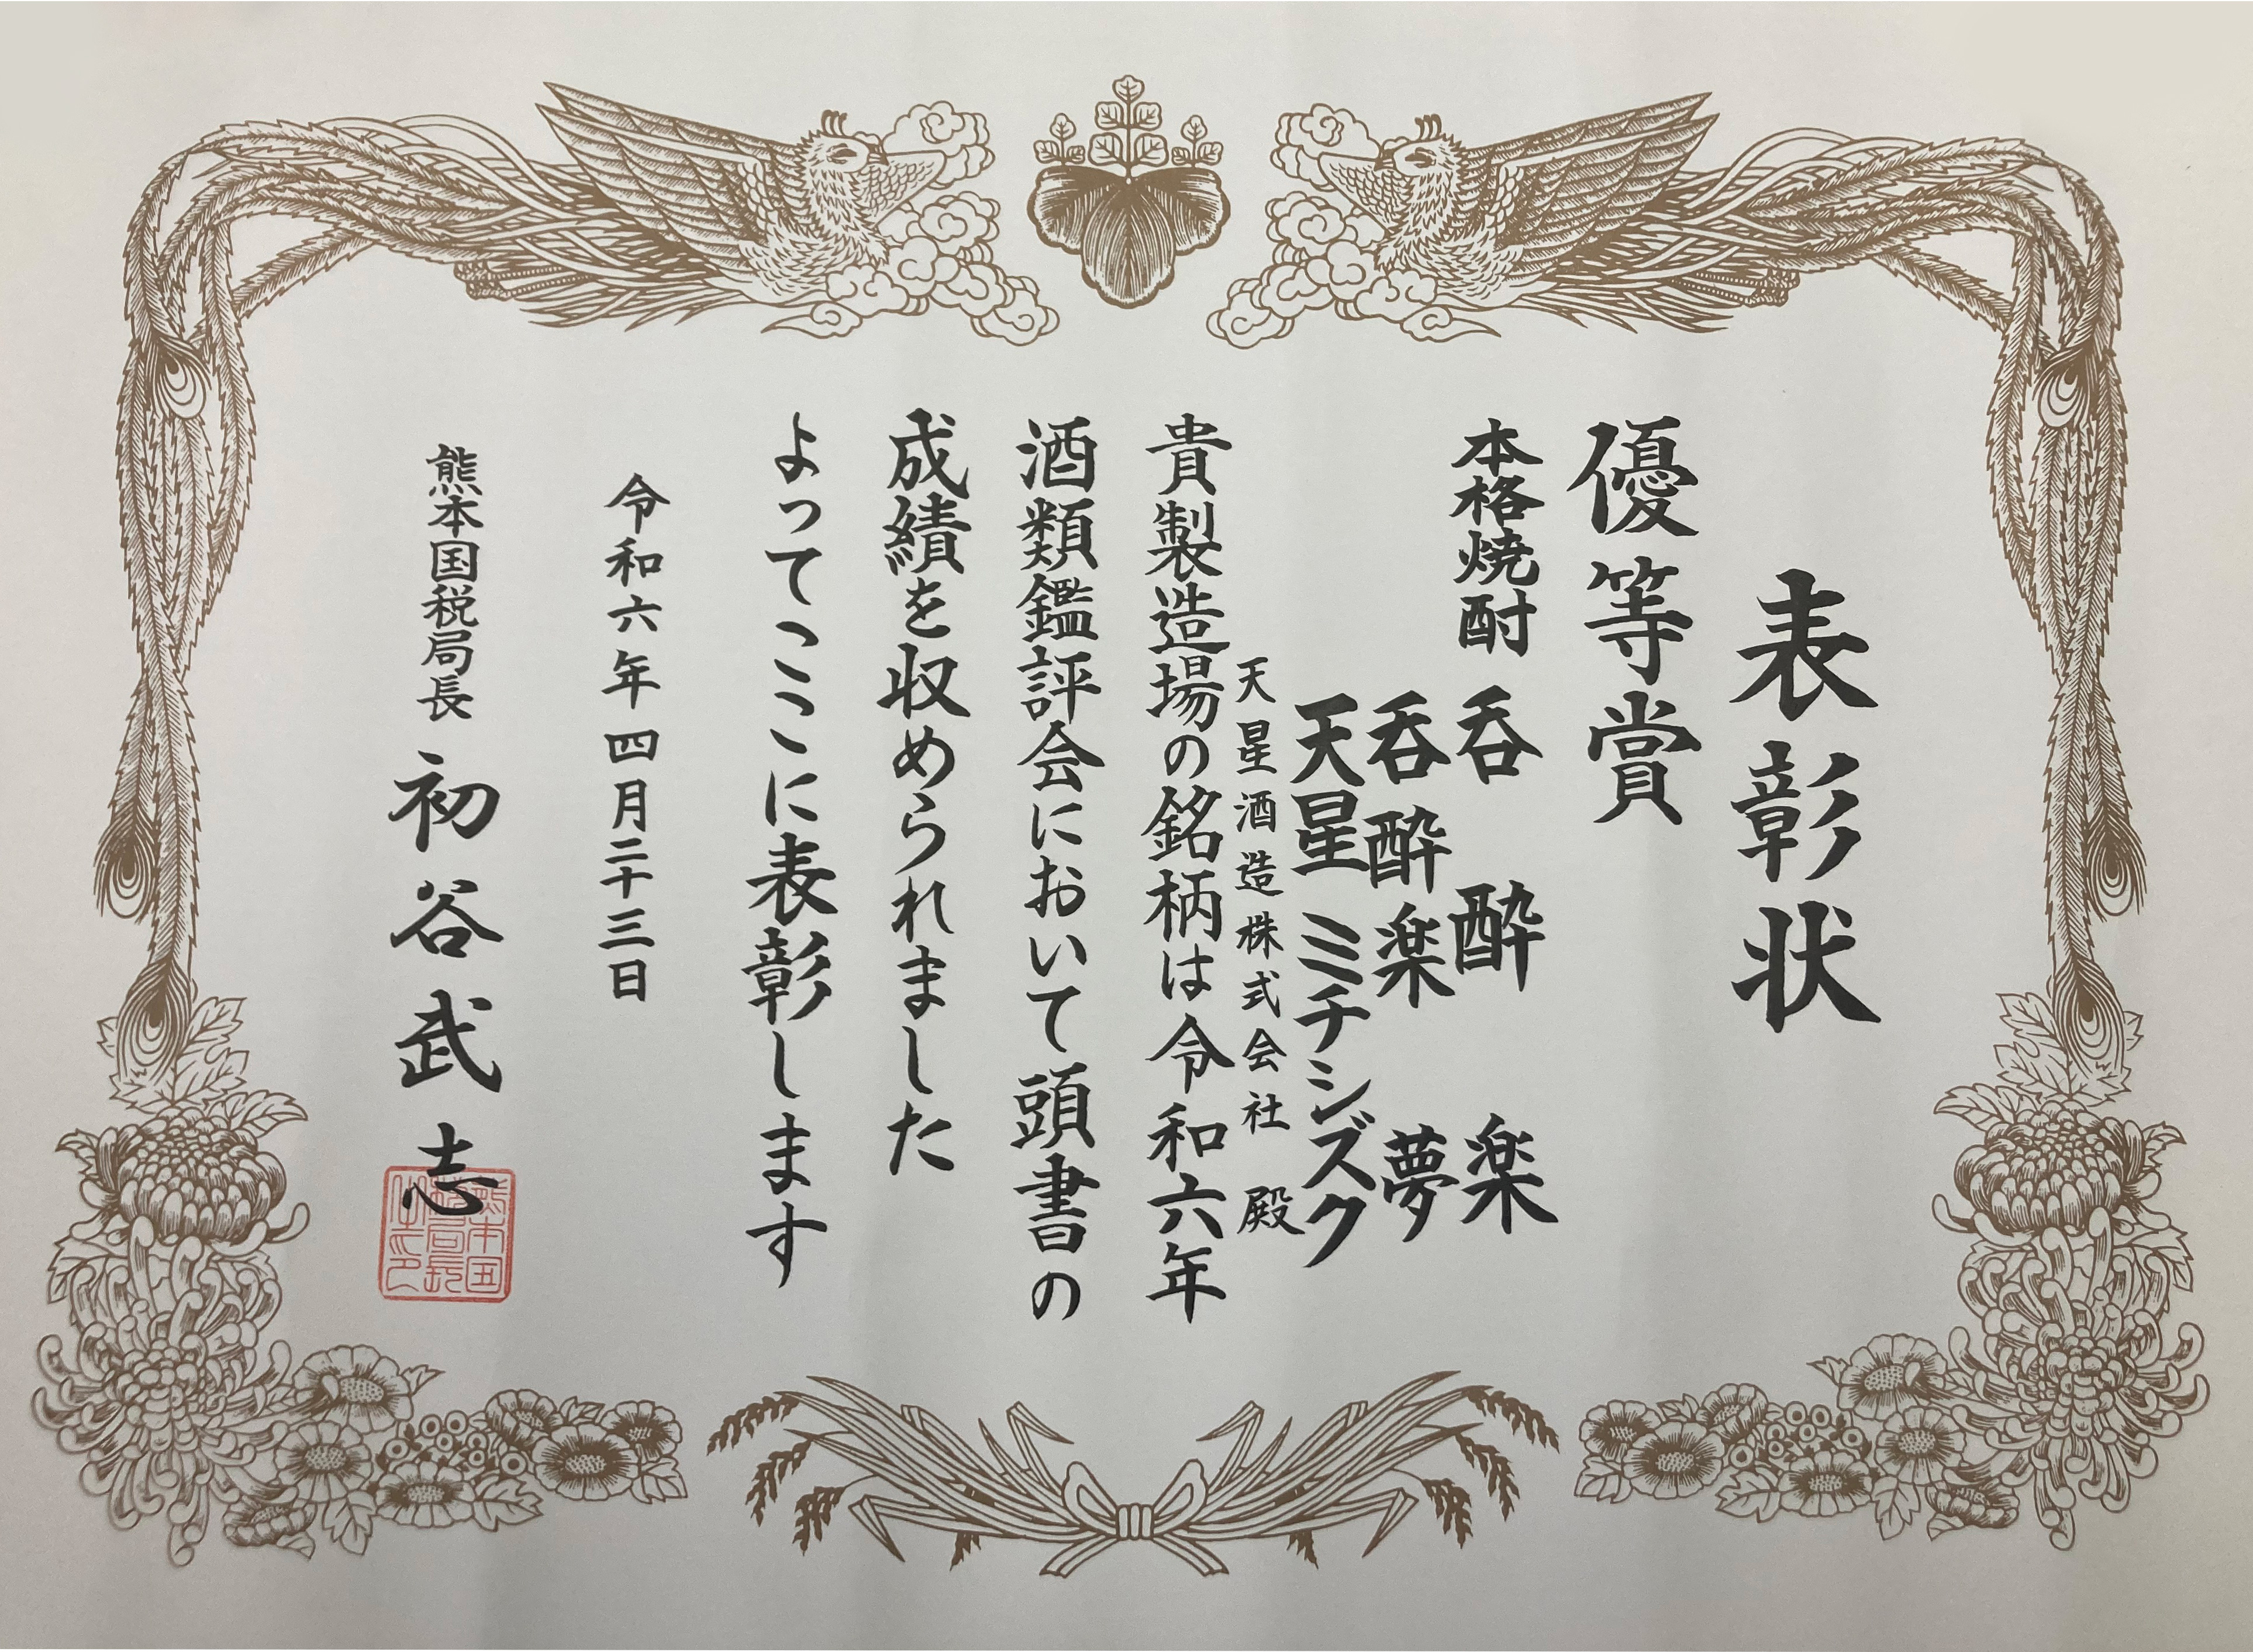 表彰状
優等賞
本格焼酎 呑酔楽
呑酔楽 夢
天星 ミチシズク
天星酒造株式会社 殿
貴製造場の銘柄は令和六年
酒類鑑評会において頭書の
成績を収められました
よってここに表彰します
令和六年四月二十三日
熊本国税局長 初谷武志